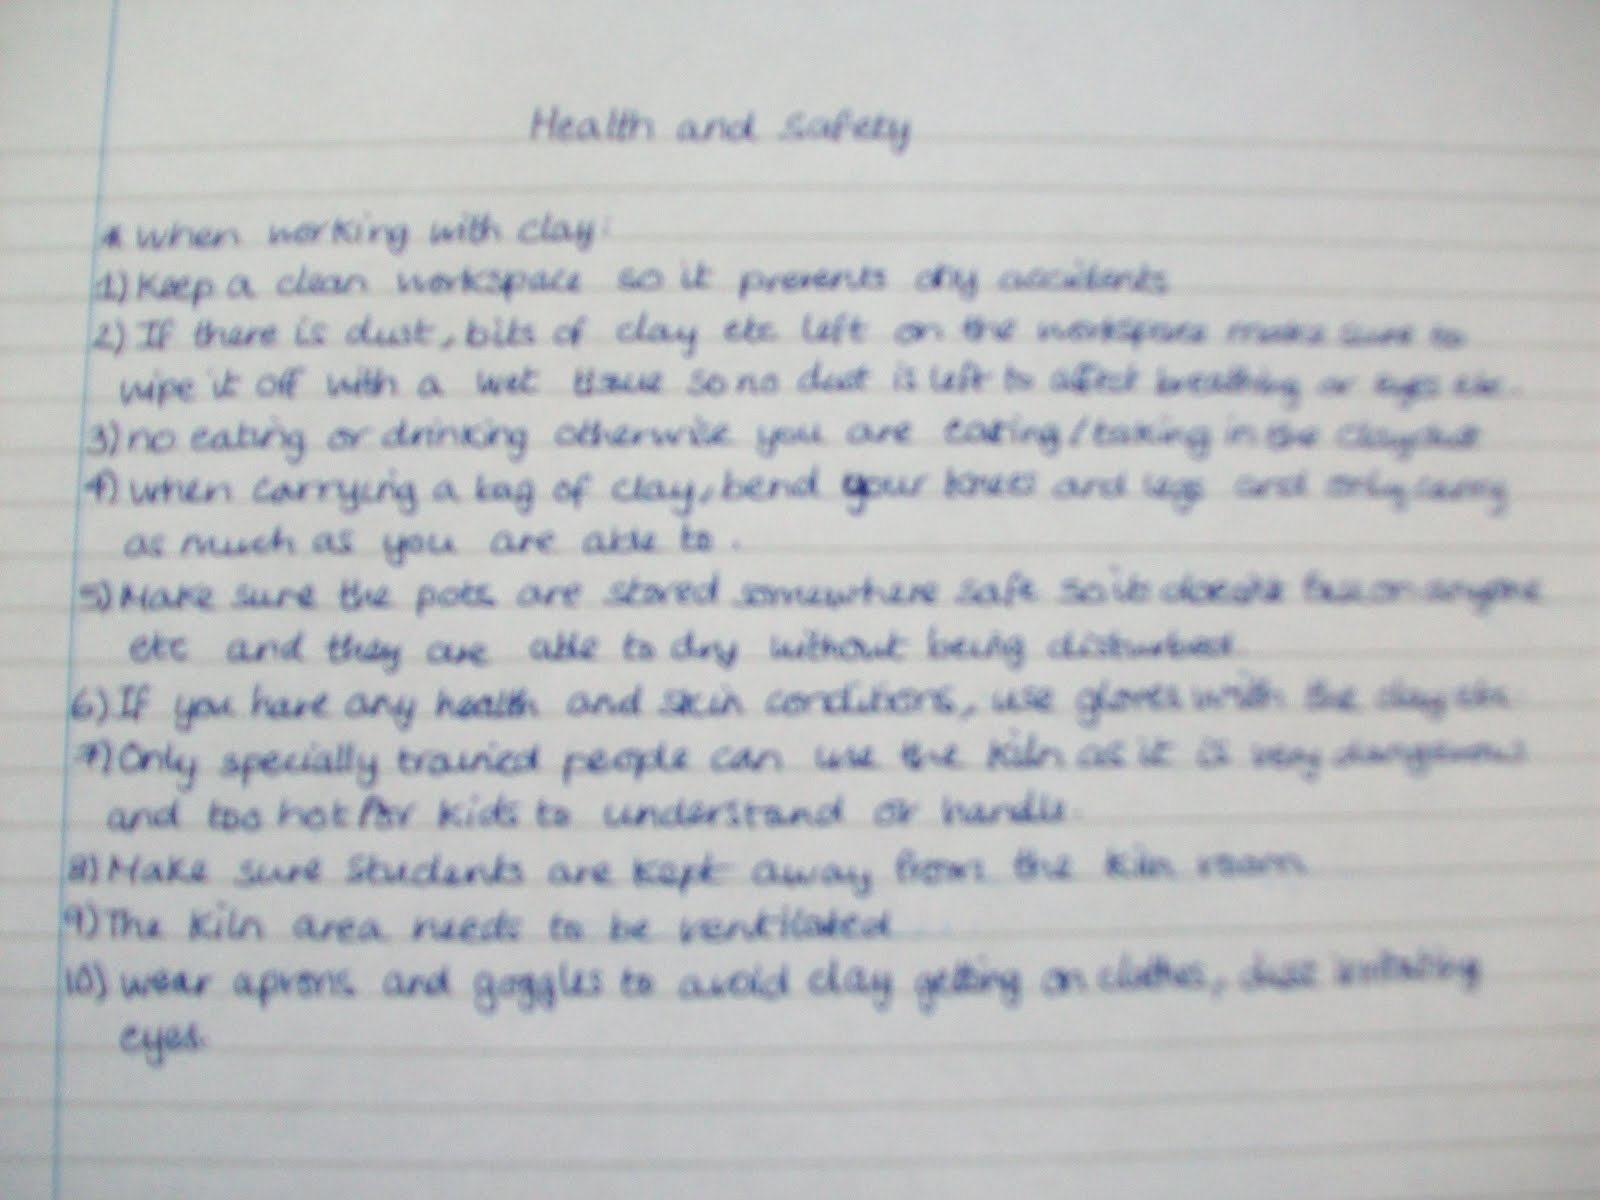 Health and Safety
* When working with clay:
1) Keep a clean workspace so it prevents any accidents
2) If there is dust, bits of clay etc left on the workspace make sure to
wipe it off with a wet tissue so no dust is left to affect breathing or eyes etc.
3) no eating or drinking otherwise you are eating/taking in the clay dust
4) when carrying a bag of clay, bend your knees and legs and only carry
as much as you are able to.
5) Make sure the pots are stored somewhere safe so it doesn't fall on anyone
etc and they are able to dry without being disturbed.
6) If you have any health and skin conditions, use gloves with the clay etc.
7) Only specially trained people can use the kiln as it is very dangerous
and too hot for kids to understand or handle.
8) Make sure students are kept away from the kiln room
9) The kiln area needs to be ventilated
10) wear aprons and goggles to avoid clay getting on clothes, dust irritating
eyes.